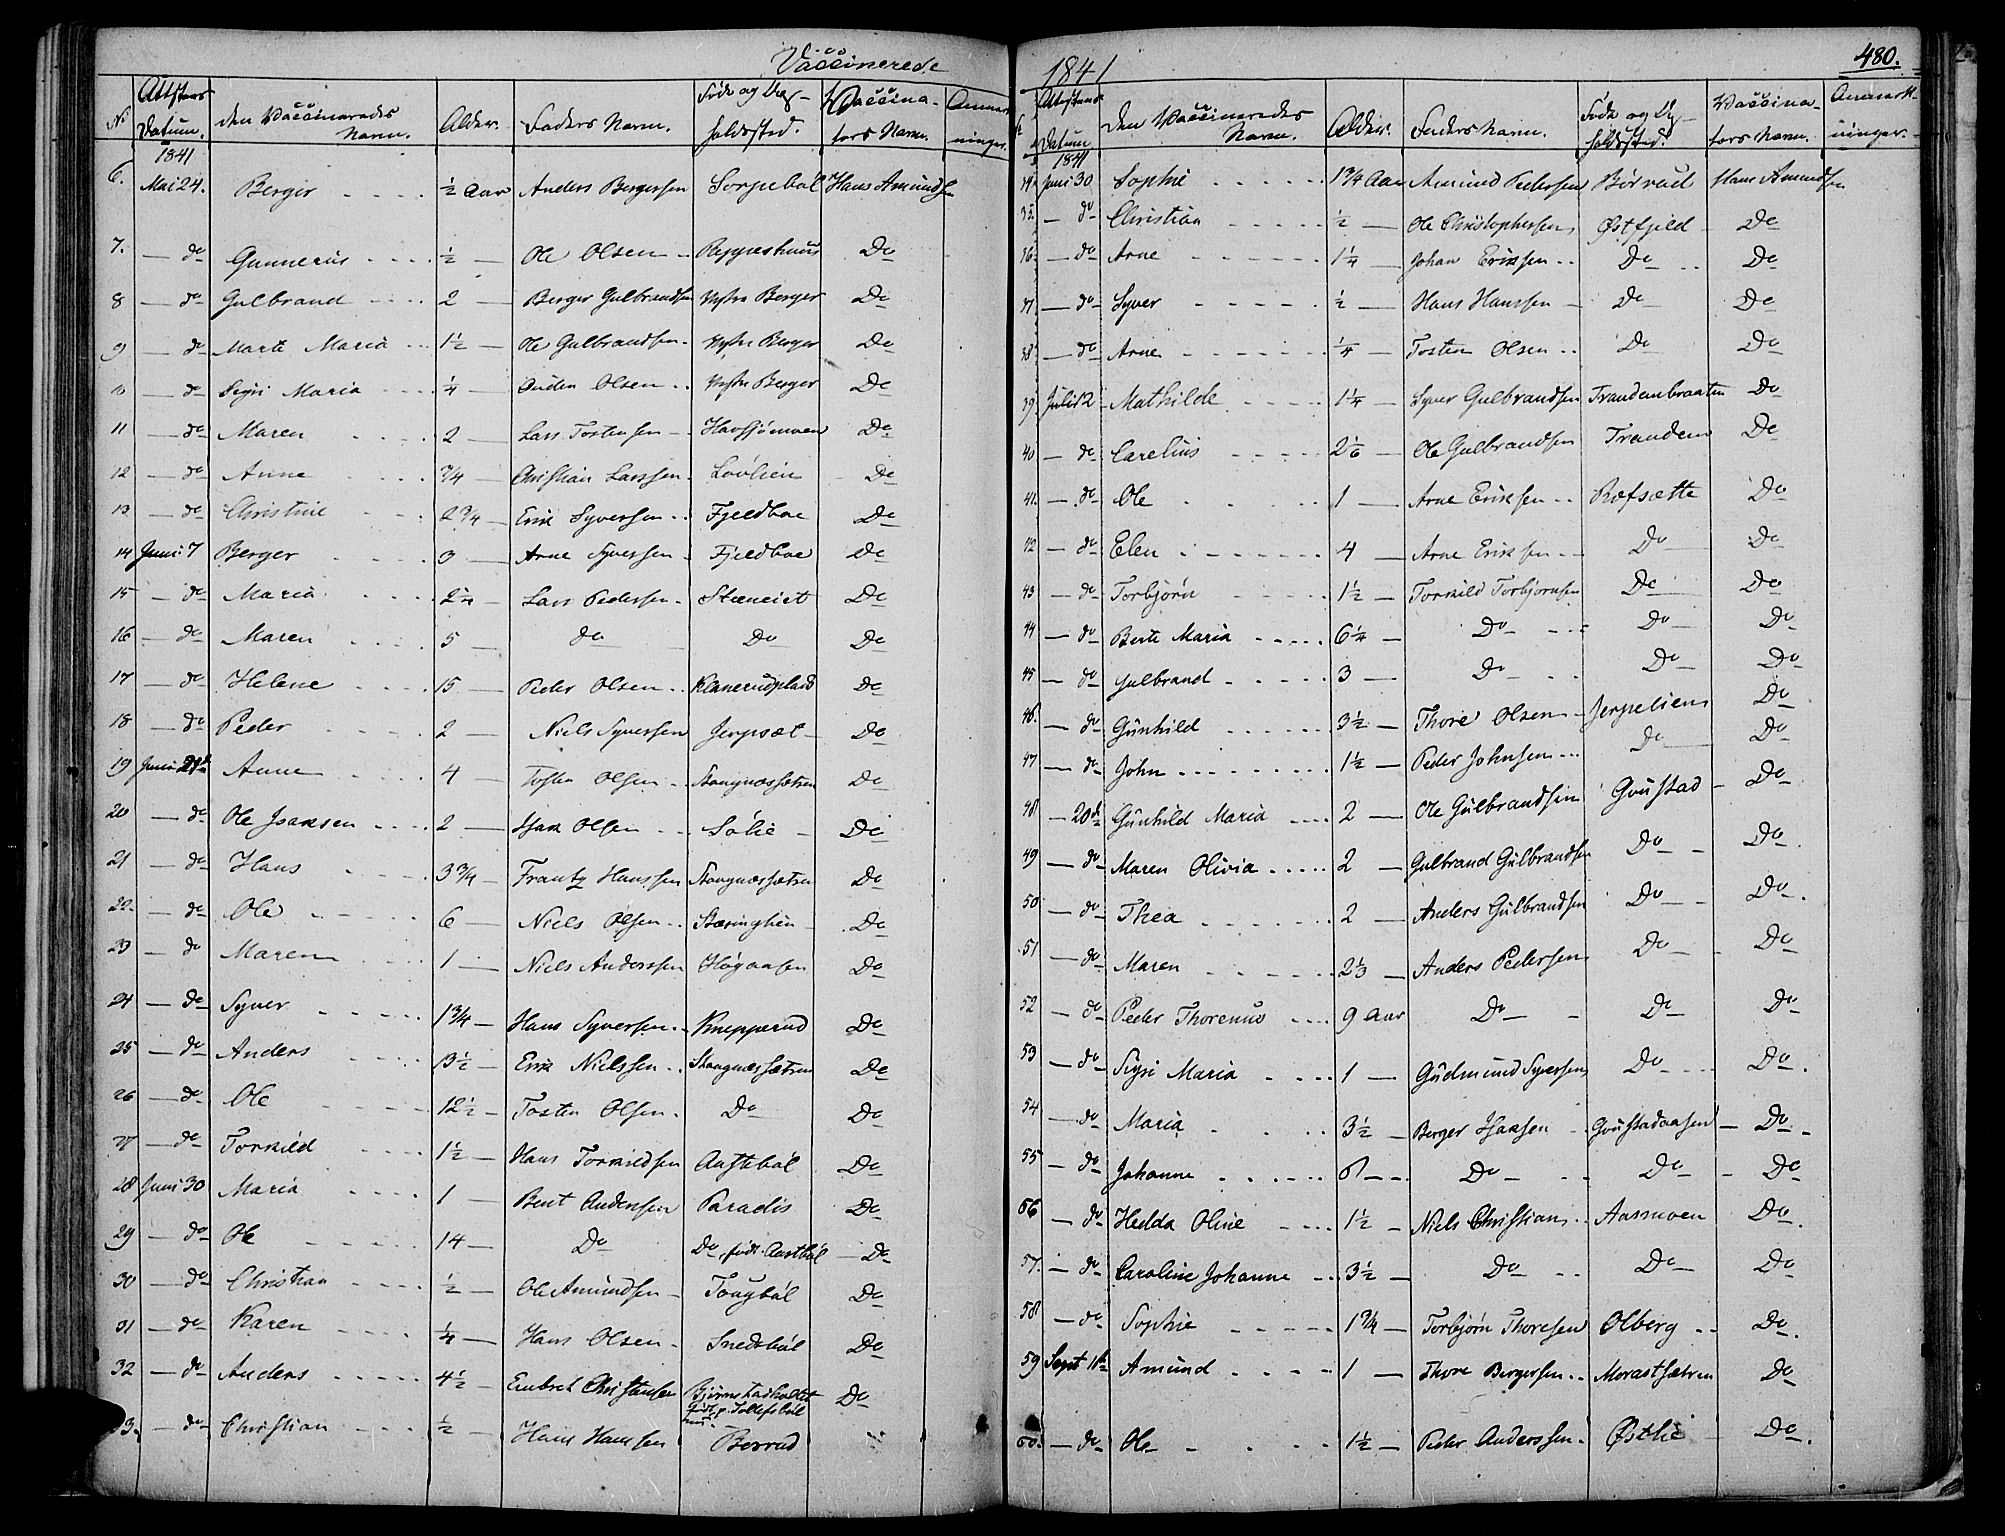 Vaccinerede
No Attestens Datum. den Vaccineredes Navn. Alder. Faders Navn. Føde og Op- holdssted. Vaccina- tors Navn. Anmærk- ninger.
1841
6. Mai 24. Berger ½ Aar Anders Bergersen Sorpebøl Hans Amundsen
7. — do Gunnerius ½ — Ole Olsen Do
8 — do Gulbrand 2 — Berger Gulbrandsen Berger Do
9 — do Marte Maria 1½ — Ole Gulbrandsen Berger Do
10 — do Sigri Maria ¼ — Auden Olsen Berger Do
11 — do Maren 2 — Lars Tostensen Havsjømoen Do
12 — do Anne ¾ — Christian Larssen Lovlien Do
13 — do Christine 2¾ — Erik Syversen Fjeldboe Do
14 Juni 7 Berger 3 — Arne Syversen Fjeldboe Do
15 — do Maria 2¼ — Lars Pedersen Do
16 — do Maren 5 — Do Do Do
17 — do Helene 15 — Peder Olsen Do
18 — do Peder 2 — Niels Syversen Jerpsæt Do
19 Juni 21de Anne 4 — Tosten Olsen Stangnæssætren Do
20 — do Ole Isaksen 2 — Isak Olsen Sølie Do
21 — do Hans 3¾ — Frantz Hanssen Stangnæssætren Do
22. — do Ole 6 — Niels Olsen Stæringlien Do
23 — do Maren 1 — Niels Anderssen Høgaasen Do
24 — do Syver 1¾ — Hans Syversen Knepperud Do
25 — do Anders 13½ — Erik Nielssen Stangnæssætren Do
26 — do Ole 12½ — Tosten Olsen Do Do
27 — do Torkild 1½ — Hans Torkildsen Aastebøl Do
28 Juni 30 Maria 1 — Bent Andersen Paradis Do
29 — do Ole 14 — Do Do, født Aastbøl Do
30 — do Christian ½ — Ole Amundsen Tougbøl Do
31 — do Karen ¼ — Hans Olsen Snedsbøl Do
32 — do Anders 4½ — Embret Christiansen Bjørnstadholtet Do
33. — do Christian ½ — Hans Hanssen Berrud
1841
480.
Attestens Datum Den Vaccineredes Navn. Alder. Faders Navn. Føde og Op- holdssted. Vaccina- tors Navn. Anmærk- ninger.
1841
34. Juni 30 Sophie 1¾ Aar Amund Pedersen Børrud Hans Amundsen
35. — do Christian ½ — Ole Christophersen Østfjeld Do
36 — do Arne 1¼ — Johan Eriksen Do Do
37 — do Syver ½ — Hans Hanssen Do Do
38 — do Arne ¼ — Tosten Olsen Do Do
39 Juli 12 Mathilde 1¼ — Syver Gulbrandsen Trandembraaten Do
40 — do Carelius 2⅙ — Ole Gulbrandsen Trandem Do
41. — do Ole 1 — Arne Eriksen Rofsætte Do
42 — do Elen 4 — Arne Eriksen Do Do
43 — do Torbjørn 1½ — Torkild Torbjørnsen Do Do
44 — do Berte Maria 6¼ — Do Do Do
45 — do Gulbrand 3 — Do Do Do
46. — do Gunhild 3½ — Thore Olsen Jerpelien Do
47 — do John 1½ — Peder Johnsen Do Do
48 — 20de Gunhild Maria 2 — Ole Gulbrandsen Goustad Do
49 — do Maren Olivia 2 — Gulbrand Gulbrandsen Do Do
50 — do Thea 2 — Anders Gulbrandsen Do Do
51 — do Maren 2⅓ — Anders Pedersen Do Do
52 — do Peder Thorenus 9 Aar Do Do Do
53 — do Sigri Maria 1 — Gudmund Syversen Do Do
54 — do Maria 3½ — Berger Isaksen Goustadaasen Do
55 — do Johanne 6 — Do Do Do
56 — do Hedda Oline 1½ — Niels Christians. Aasmoen Do
57. — do Caroline Johanne 3½ — Do Do Do
58 — do Sophie 1¾ — Torbjørn Thoresen Olberg Do
59 Sept 11te Amund 1 — Thore Bergersen Morastsætren Do
60. — do Ole 1½ — Peder Anderssen Østlie Do